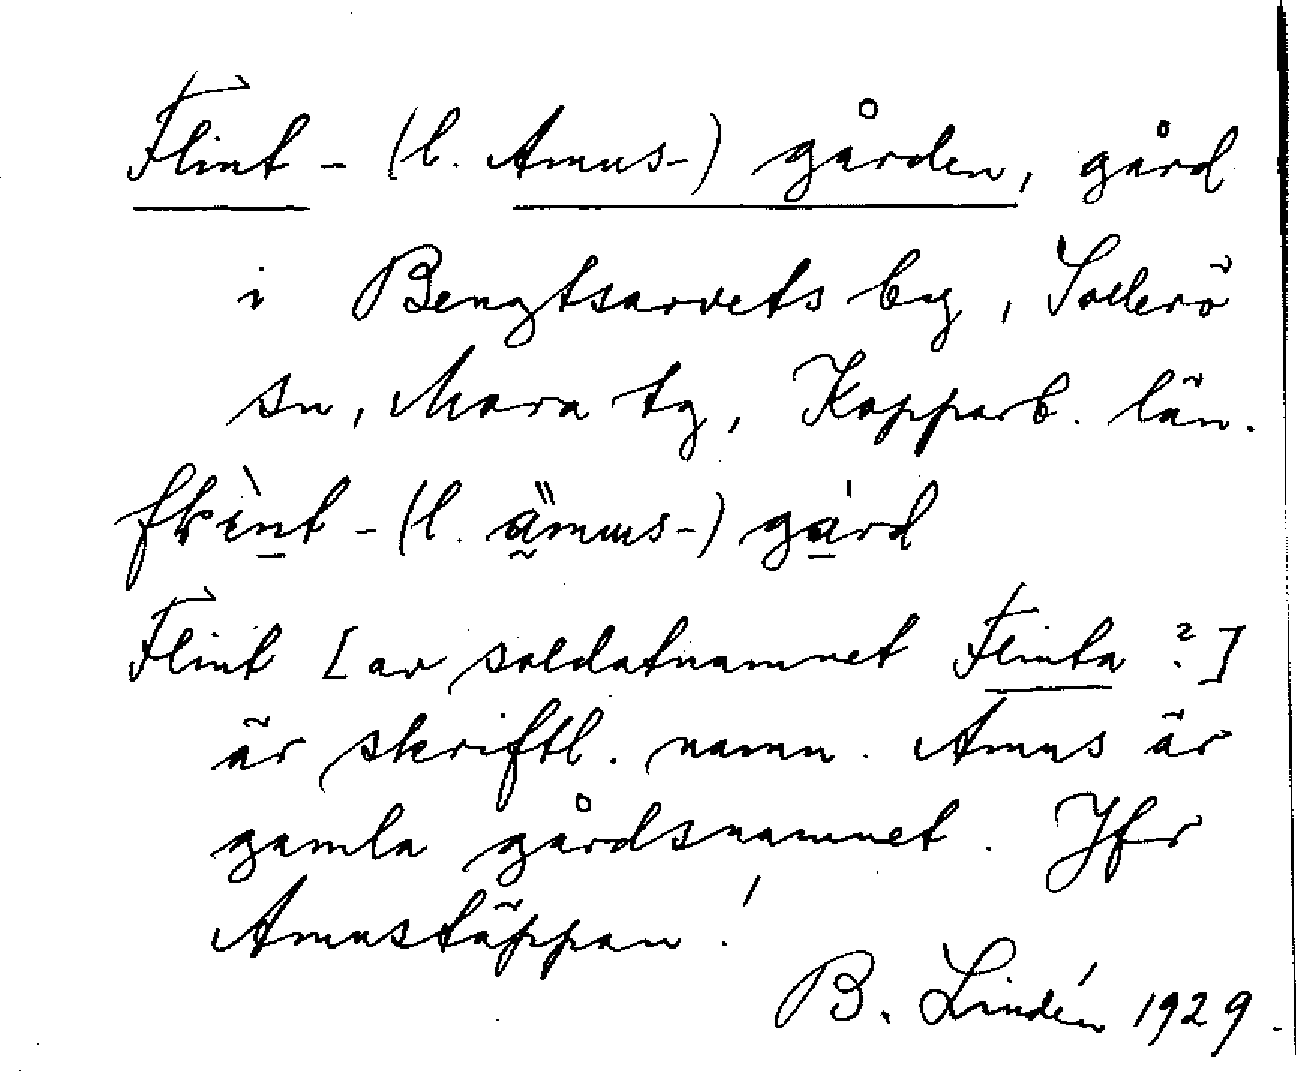 Flint - (l. Amus-) gården, gård
i Bengtsarvets by, Sollerö
sn, Mora tg, Kopparb. län.
-(l. ämus-) gard
Flint [av soldatnamnet Flinta ?]
är skriftl. namn. Amus är
gamla gårdsnamnet. Jfr
Amustäppan!
B. Lindén 1929.